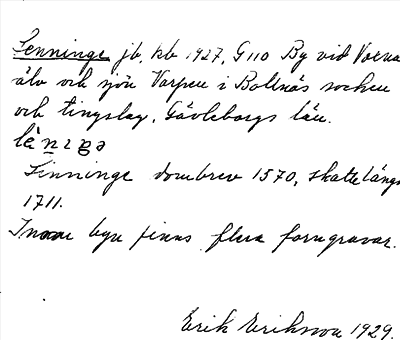 Lenninge jb, kb 1927, G110 By vid Voxna
älv och sjön Varpen i Bollnäs socken
och tingslag, Gävleborgs län.
lèniŋə
Linninge dombrev 1570, skattelängd
1711.
Inom byn finns flera forngravar.
Erik Eriksson 1929.